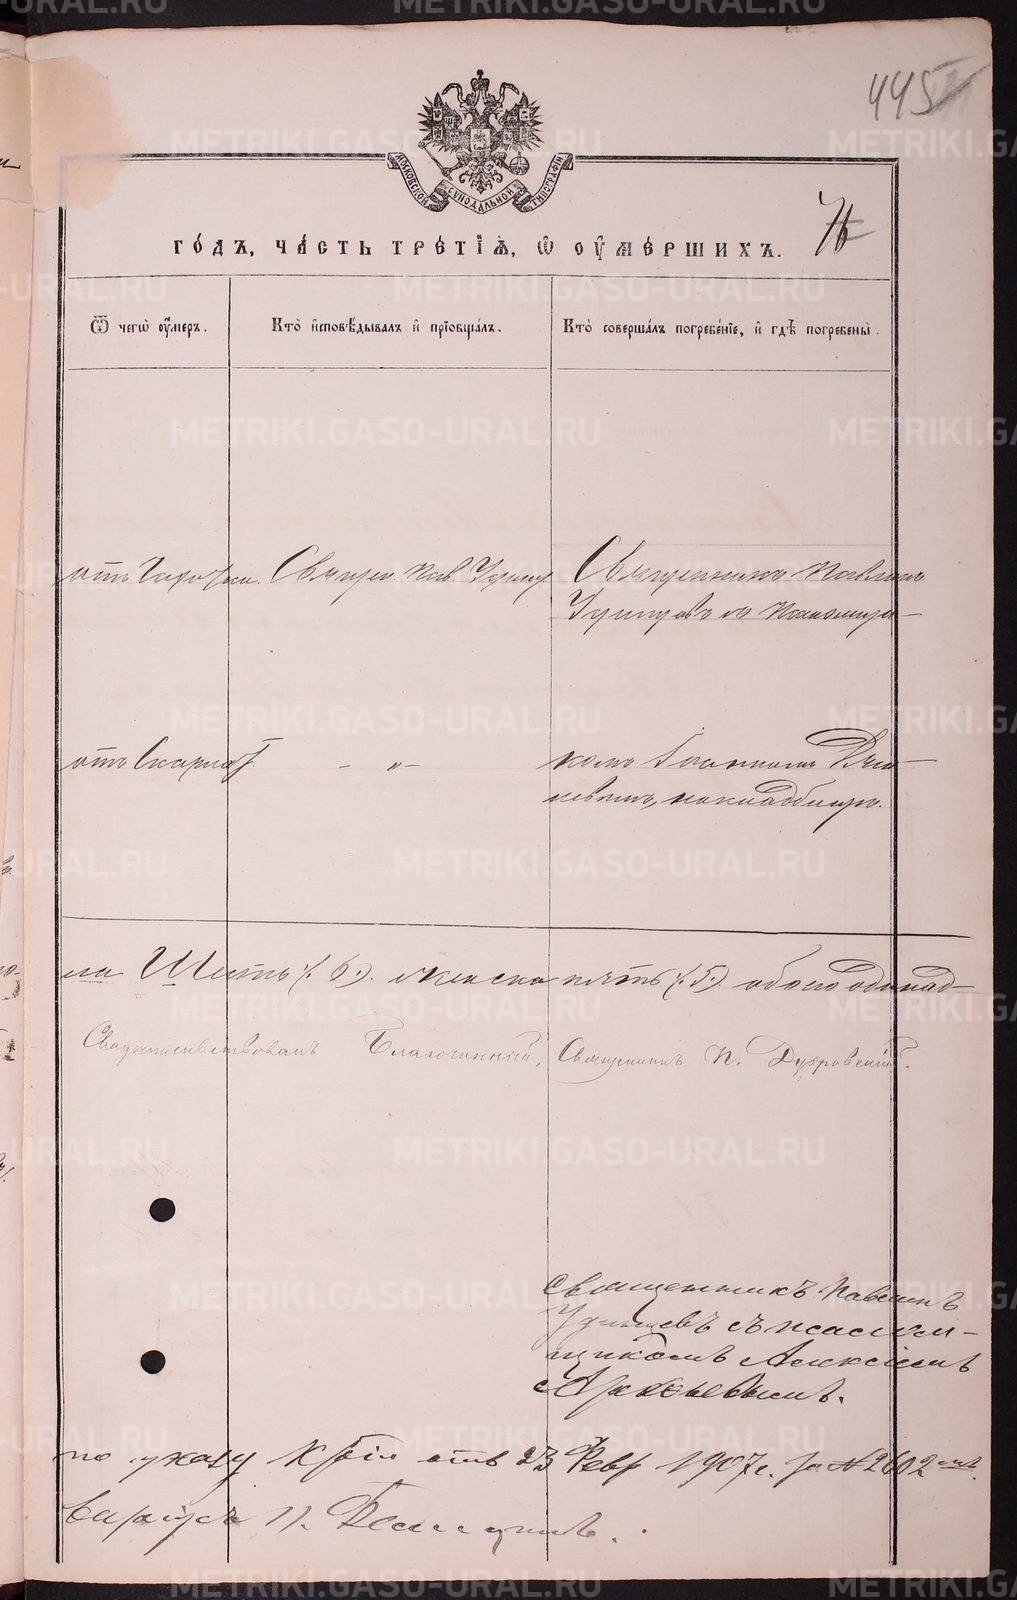 445
МОСКОВСКОЙ СѴНОДАЛЬНОЙ ТИПОГРАФІИ
76
ГО́ДЪ, ЧА́СТЬ ТРЕ́ТІѦ, Ѡ ОУ҆МЕ́РШИХЪ.
Ѿ чегѡ̀ оу҆́меръ.
Кто̀ и҆сповѣ́дывалъ и҆ прїѡбща́лъ.
Кто̀ соверша́лъ погребе́нїе, и҆ гдѣ̀ погребены̀.
отъ Чахотки. Священ. Пав. Удинц
Священникъ Павлинъ
Удинцевъ съ псаломщи-
отъ Скарлат. - " -
комъ Іоанномъ
на кладбищѣ.
ла Шесть (6). женска пять (5) обоего одинад-
Свидѣтельствовалъ Благочинный, Священникъ П. Дубровскій.
Священникъ Павлинъ
Удинцевъ съ псалом-
щикомъ Алексіемъ
по указу отъ 23 Февр 1907 г. за № 2602
METRIKI.GASO-URAL.RU